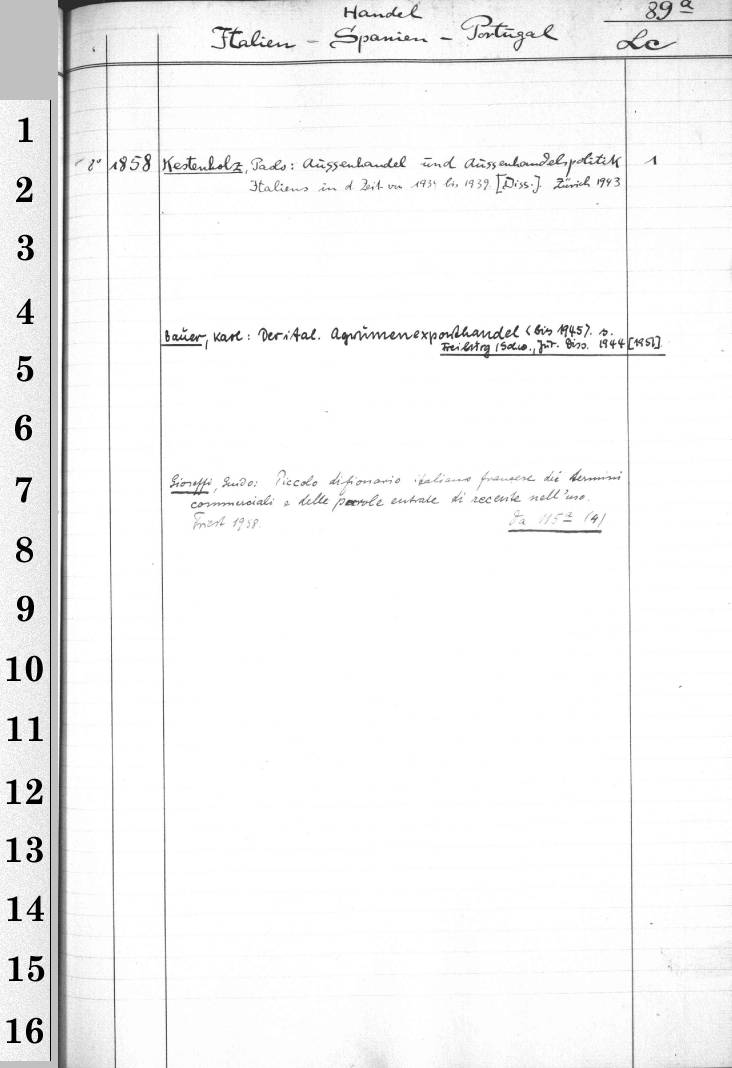 Handel
89 a
Italien - Spanien - Portugal
Lc
1
8° 1858 Kestenholz, : Aussenhandel und Aussenhandelspolitik 1
2
Italiens in d Zeit von 1934 bis 1939. [Diss.]. Zürich 1943
3
4
Bauer, Karl: Der ital. Agrumenexporthandel (bis 1945). s.
Freiburg /Schw., Jur. Diss. 1944 [1951].
5
6
7
Gioseffi, Guido: Piccolo dizionario italiano francese dei termini
commerciali e delle parole entrate di recente nell'uso.
Triest 1938. 115 a (4)
8
9
10
11
12
13
14
15
16